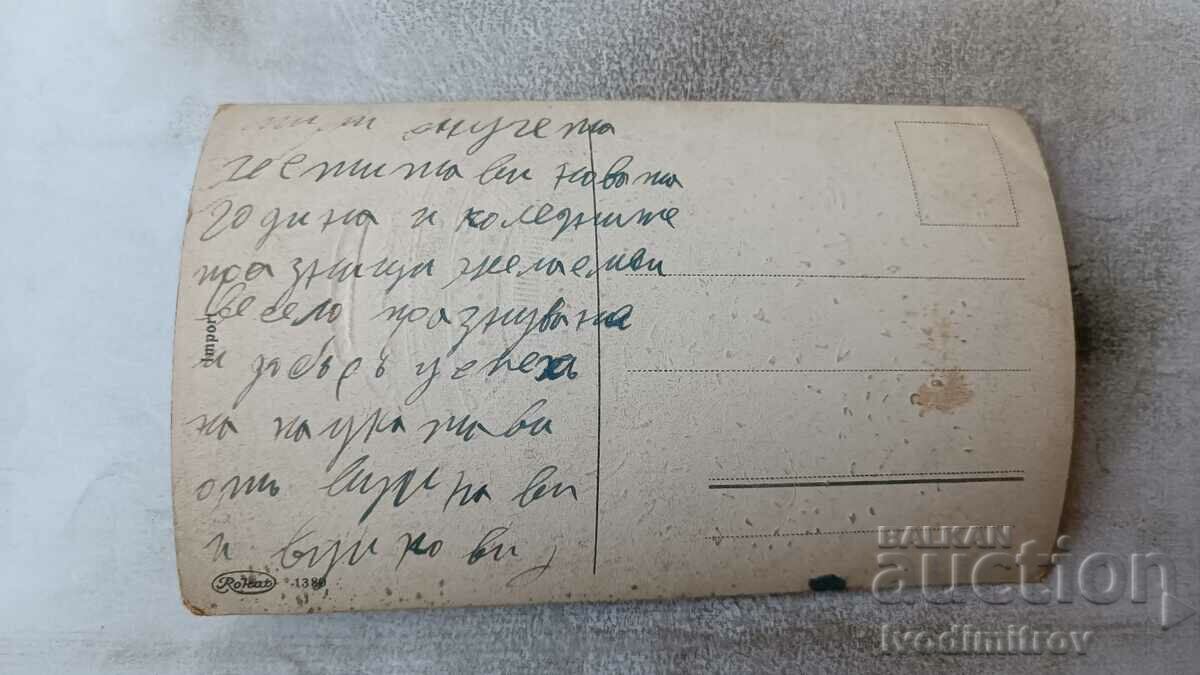 внучета
честитави новата
година и коледните
празници желаеми
весело празнувана
и добъръ успеха
на наукатави
отъ вуйнави
и вуйкови
Import
Rokat 1380
BALKAN
auction
Ivodimitrov